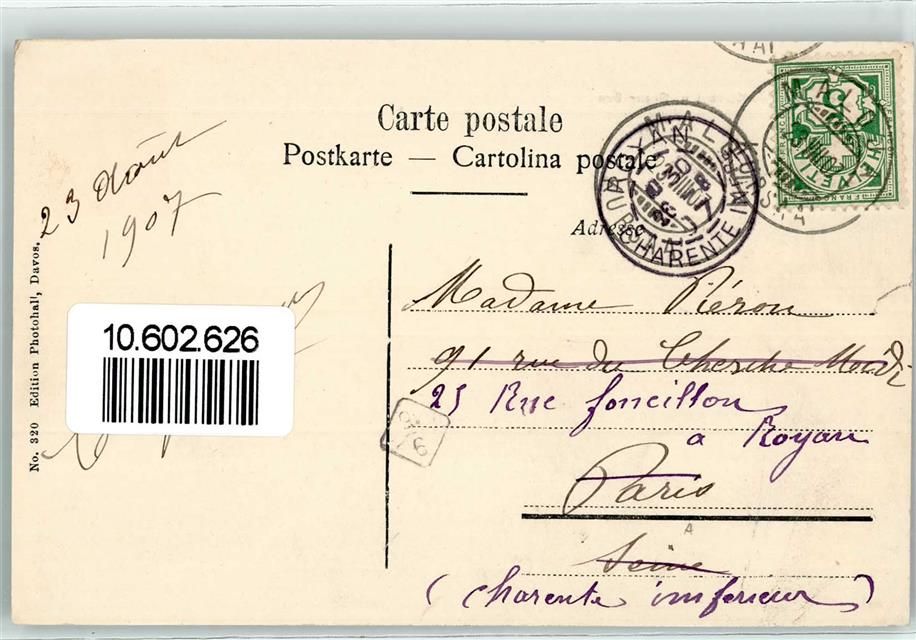 Carte postale
Postkarte — Cartolina postale
Adresse
23 Août
1907
No. 320 Edition Photohall, Davos.
10.602.626
Madame Piéron
91 rue du Cherche Midi
25 Rue foncillon
a Royan
Paris
Seine
(Charente inferieur)
MALOJA
HELVETIA
FRANCO
ROYAN
CHARENTE INF